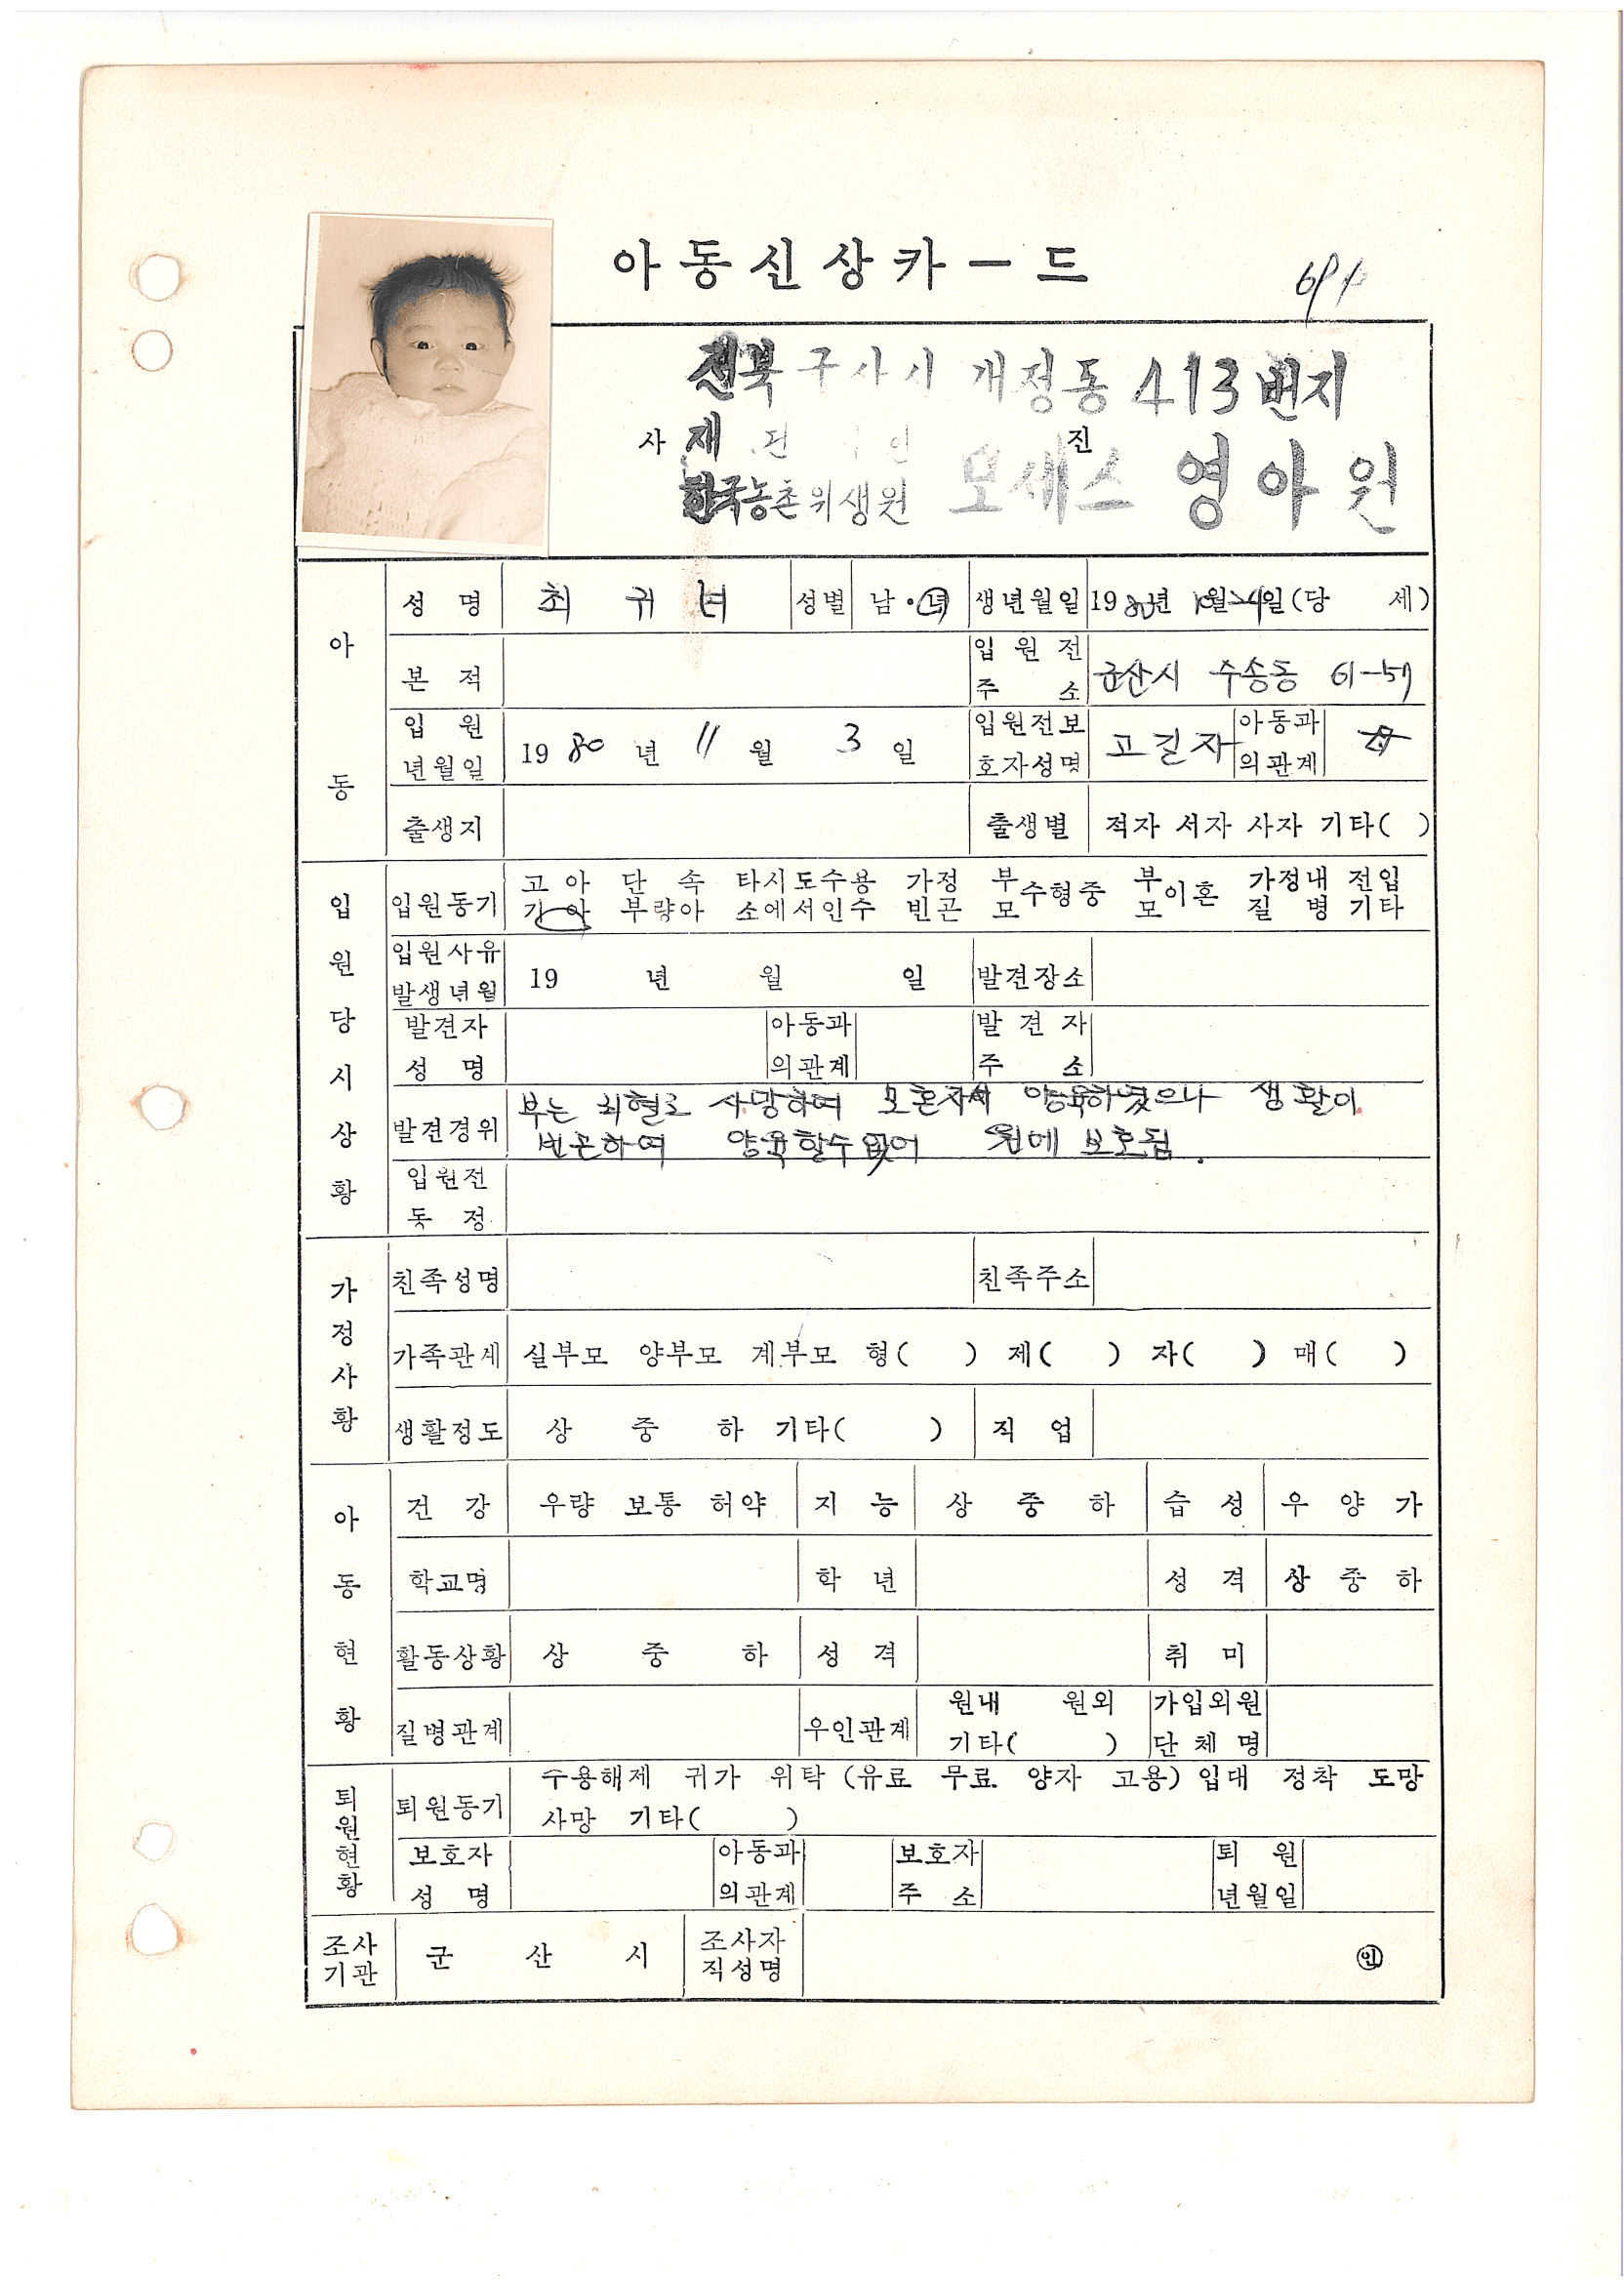 아동신상카ー드
전북 구사시 개정동 413번지
사 재 단 인 진
한국농촌위생원 모세스 영아원
아동
성명 최귀녀 성별 남·녀 생년월일 1980년 10월 24일 (당 세)
본적 입원전주소 군산시 수송동 61-57
입원년월일 1980년 11월 3일 입원전보호자성명 고길자 아동과의관계 母
출생지 출생별 적자 서자 사자 기타( )
입원당시상황
입원동기 고아 단속 타시도수용 가정 부수형중 부이혼 가정내 전입
기아 부랑아 소에서인수 빈곤 모 모 질병 기타
입원사유발생년월 19 년 월 일 발견장소
발견자성명 아동과의관계 발견자주소
발견경위 부는 사망하여 모혼자서 양육하였으나 생활이
빈곤하여 양육할수없어 원에 보호됨.
입원전동정
가정사황
친족성명 친족주소
가족관계 실부모 양부모 계부모 형( ) 제( ) 자( ) 매( )
생활정도 상 중 하 기타( ) 직업
아동현황
건강 우량 보통 허약 지능 상 중 하 습성 우 양 가
학교명 학년 성격 상 중 하
활동상황 상 중 하 성격 취미
질병관계 우인관계 원내 원외 기타( ) 가입외원단체명
퇴원현황
퇴원동기 수용해제 귀가 위탁 (유료 무료 양자 고용) 입대 정착 도망
사망 기타( )
보호자성명 아동과의관계 보호자주소 퇴원년월일
조사기관 군산시 조사자직성명 인